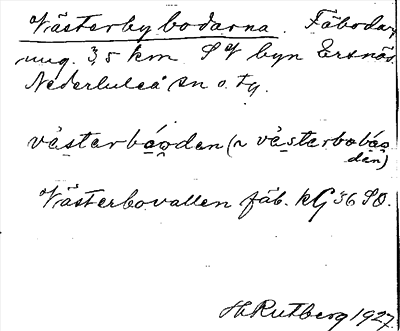 Västerbybodarna. Fäbodar,
ung. 3,5 km. SV byn Ersnäs.
Nederluleå sn o. tg.
västerbåoden (~ västerbobåo
den)
Västerbovallen fäb. kG 36 SO.
H. Rutberg 1927.